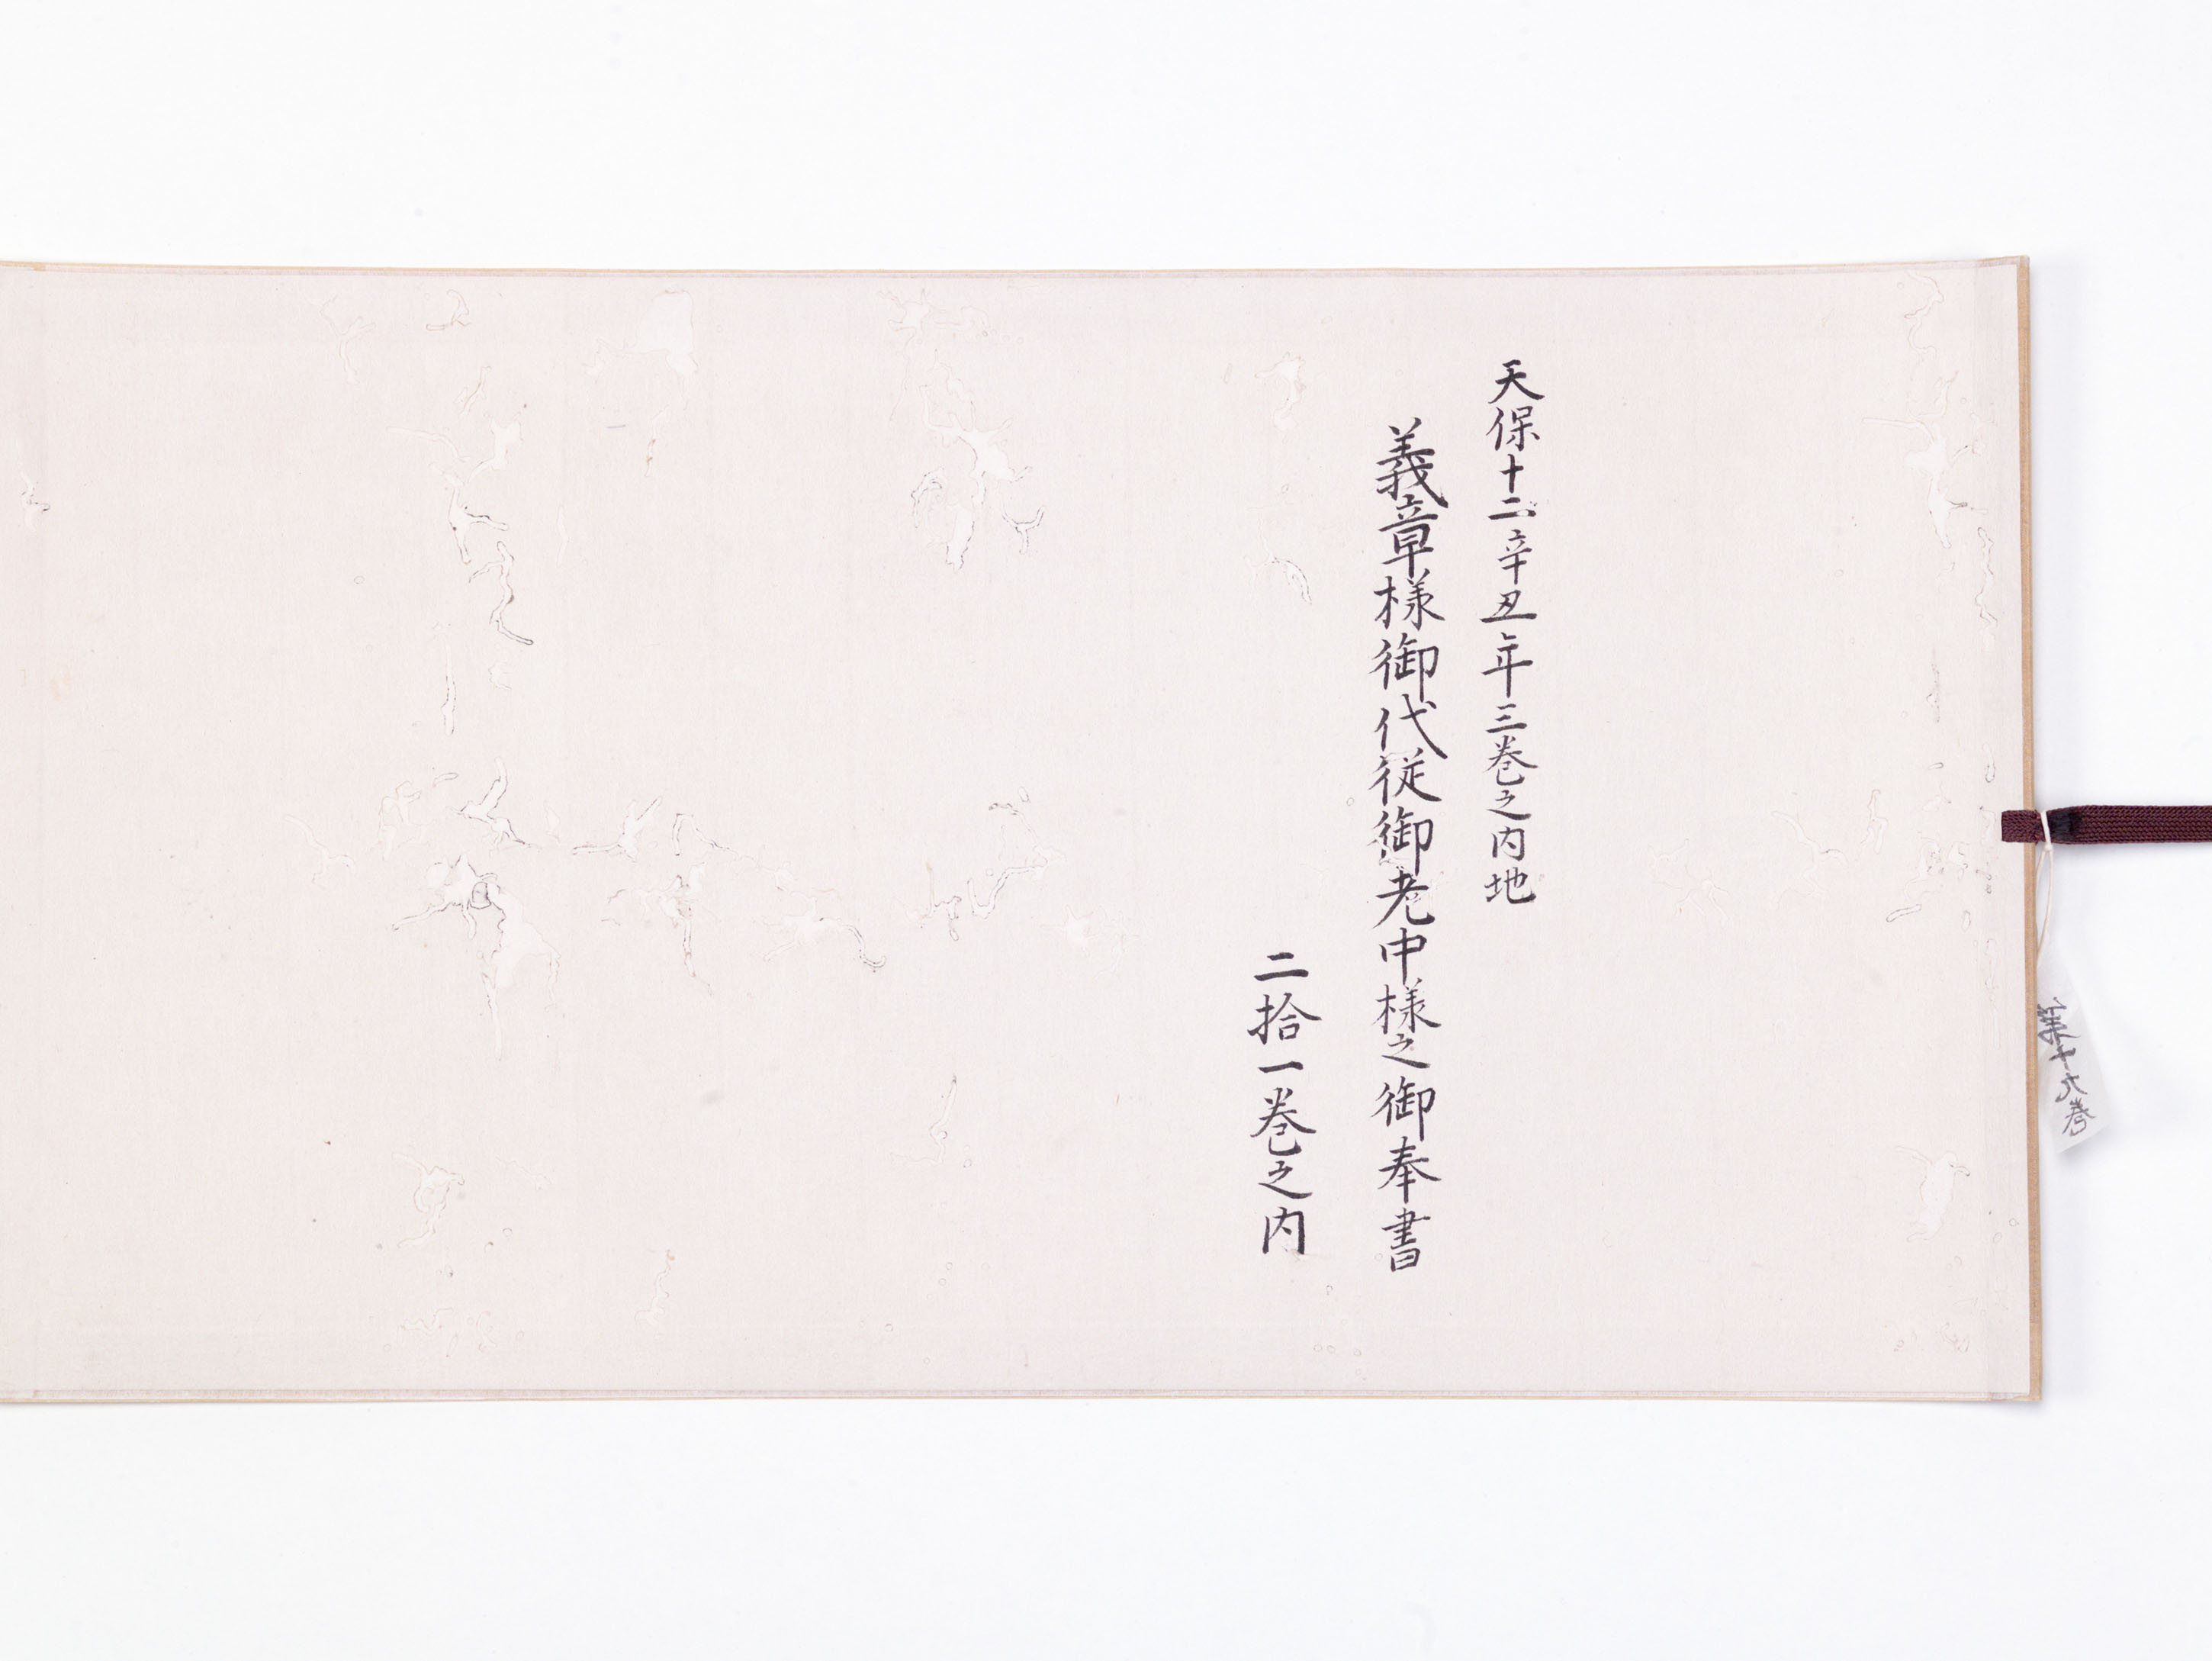 天保十二辛丑年三巻之内地
義章様御代従御老中様之御奉書
二拾一巻之内
第十六巻